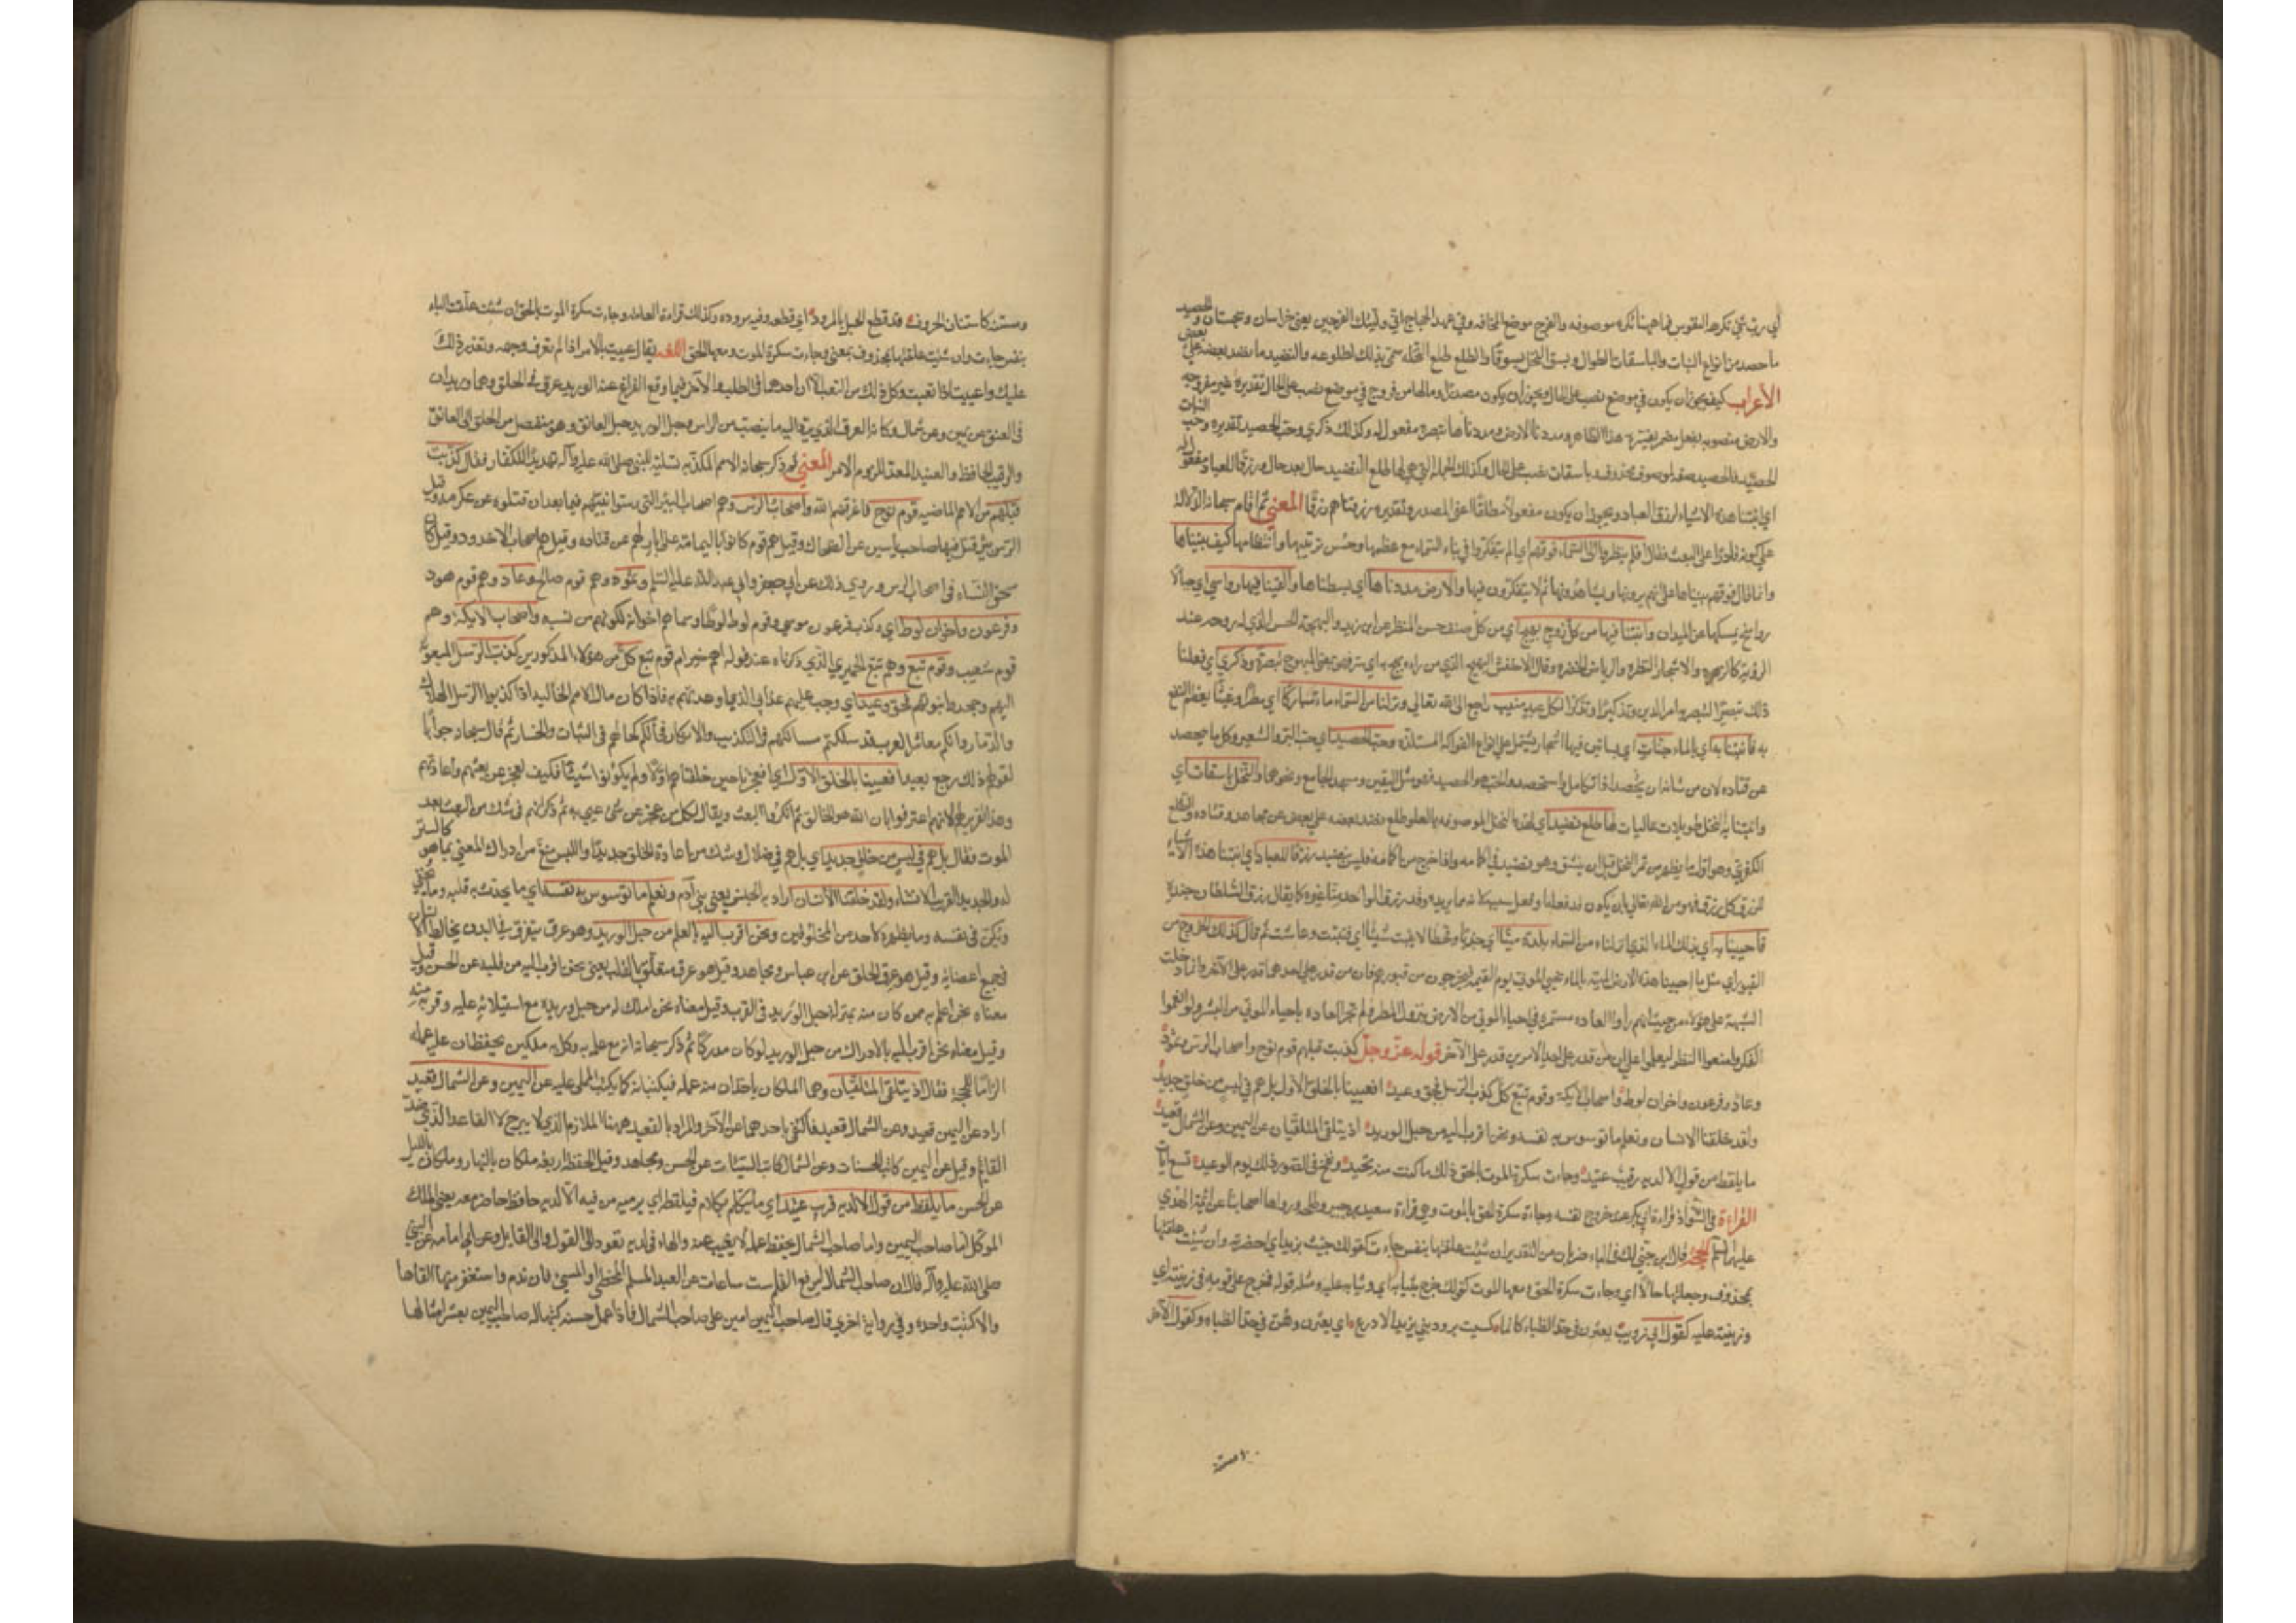 أي رب شي تكرهه النفوس فما ههنا نكرة موصوفة والفرج موضع المخافة وفي عهد الحجاج اني وليتك الفرجين يعني خراسان وسجستان والحصيد
ما حصد من انواع النبات والباسقات الطوال وبسق النخل بسوقا والطلع طلع النخلة سمي بذلك لطلوعه والنضيد ما نضد بعضه على بعض
الأعراب كيف يجوز ان يكون في موضع نصب على الحال ويجوز ان يكون مصدرا وما لها من فروج في موضع نصب على الحال تقديره غير مفروجة
والارض منصوبه بفعل مضمر يفسره هذا الظاهر ومددنا الارض مددناها تبصرة مفعول له وكذلك ذكري وحب الحصيد تقديره وحب النبات
الحصيد فالحصيد صفة لموصوف محذوف باسقات نصب على الحال وكذلك الجملة التي هي لها طلع نضيد حال بعد حال ورزقا للعباد مفعول له
اي انبتنا هذه الاشياء لرزق العباد ويجوز ان يكون مفعولا مطلقا اعني المصدر وتقديره رزقناهم رزقا المعني ثم اقام سبحانه الدلالة
على كونه قادرا على البعث فقال افلم ينظروا الى السماء فوقهم اي الم يتفكروا في بناء السماء مع عظمها وحسن ترتيبها وانتظامها كيف بنيناها
وانما قال فوقهم بنيناها على انهم يرونها ويشاهدونها ثم لا يتفكرون فيها والارض مددناها اي بسطناها والقينا فيها رواسي اي جبالا
رواسخ يمسكها عن الميدان وانبتنا فيها من كل زوج بهيج اي من كل صنف حسن المنظر عن ابن زيد والبهجة الحسن الذي له روعة عند
الرؤية كالزهرة والاشجار النضرة والرياض الخضرة وقال الاخفش البهيج الذي من راه بهج به اي سر فهو بمعنى المبهوج تبصرة وذكري اي فعلنا
ذلك تبصيرا ليتبصر به امر الدين وتذكيرا وتذكرا لكل عبد منيب راجع الى الله تعالى ونزلنا من السماء ماء مباركا اي مطرا وغيثا يعظم النفع
به فانبتنا به اي بالماء جنات اي بساتين فيها اشجار تشتمل على انواع الفواكه المستلذة وحب الحصيد اي حب البر والشعير وكل ما يحصد
عن قتاده لان من شانه ان يحصد اذا تكامل واستحصد والحب هو الحصيد فهو مثل اليقين ومسجد الجامع ونحوهما والنخل باسقات اي
وانبتنا به النخل طويلات عاليات لها طلع نضيد اي لهذه النخل الموصوفه بالعلو طلع نضد بعضه على بعض عن مجاهد وقتاده والطلع
الكفري وهو اول ما يظهر من ثمر النخل قبل ان ينشق وهو نضيد في اكمامه واذا خرج من اكمامه فليس بنضيد رزقا للعباد اي انبتنا هذه الاشياء
للرزق كل رزق فهو من الله تعالى بان يكون قد فعله او فعل سببه لانه مما يريده وقد يرزق الواحد منا غيره كما يقال رزق السلطان جنده
فاحيينا به اي بذلك الماء الذي انزلناه من السماء بلدة ميتا اي جدبا وقحطا لا ينبت شيئا اي فنبتت وعاشت ثم قال كذلك الخروج من
القبور اي مثل ما احيينا هذه الارض الميتة بالماء نحيي الموتي يوم القيمة فيخرجون من قبورهم فان من قدر على احدهما قدر على الاخر وانما دخلت
الشبهة على هؤلاء من حيث انهم راوا العادة مستمرة في احياء الموتي من الارض بنزول المطر ولم تجر العادة باحياء الموتي من البشر ولو انعموا
الفكر وامنعوا النظر ليعلموا اعلى ان من قدر على احد الامرين قدر على الاخر قوله عز وجل كذبت قبلهم قوم نوح واصحاب الرس وثمود
وعاد وفرعون واخوان لوط واصحاب الايكة وقوم تبع كل كذب الرسل فحق وعيد افعيينا بالخلق الاول بل هم في لبس من خلق جديد
ولقد خلقنا الانسان ونعلم ما توسوس به نفسه ونحن اقرب اليه من حبل الوريد اذ يتلقى المتلقيان عن اليمين وعن الشمال قعيد
ما يلفظ من قول الا لديه رقيب عتيد وجاءت سكرة الموت بالحق ذلك ما كنت منه تحيد ونفخ في الصور ذلك يوم الوعيد تسع ايات
القراءة في الشواذ قراءة ابي بكر عند خروج نفسه وجاءت سكرة الحق بالموت وهي قراءة سعيد بن جبير وطلحة ورواها اصحابنا عن ائمة الهدي
عليهم السلم الحجة قال ابن جني لك في الباء ضربان من التقدير ان شئت علقتها بنفس جاءت كقولك جئت بزيد اي احضرته وان شئت علقتها
بمحذوف وجعلتها حالا اي وجاءت سكرة الحق ومعها الموت كقولك خرج بثيابه اي وثيابه عليه ومثله قوله فخرج على قومه في زينته اي
وزينته عليه كقول ابي ذؤيب يعثرن في حد الظباء كانما كسيت برود بني يزيد الاذرع اي يعثرن وهن في حد الظباه وكقول الاخر
ومستنة
ومستنة كاستنان الخروف قد قطع الحبل بالمرود اي قطعه وفيه مروده وكذلك قراءة العامه وجاءت سكرة الموت بالحق ان شئت علقت الباء
بنفس جاءت وان شئت علقتها بمحذوف بمعنى وجاءت سكرة الموت ومعها الحق اللغة يقال عييت بالامر اذا لم تعرف وجهه وتعذر ذلك
عليك واعييت اذا تعبت وكل ذلك من التعب الا ان احدهما في الطلب والاخر فيما وقع الفراغ عنه الوريد عرق في الحلق وهما وريدان
في العنق عن يمين وعن شمال وكانه العرق الذي يرد اليه ما ينصب من الراس وحبل الوريد حبل العاتق وهو منفصل من الحلق الى العاتق
والرقيب الحافظ والعتيد المعد للزوم الامر المعني ثم ذكر سبحانه الامم المكذبه تسلية للنبي صلى الله عليه وآله وتهديدا للكفار فقال كذبت
قبلهم من الامم الماضيه قوم نوح فاغرقهم الله واصحاب الرس وهم اصحاب البئر التي رسوا نبيهم فيها بعد ان قتلوه عن عكرمه وقيل
الرس بئر قتل فيها صاحب ياسين عن الضحاك وقيل هم قوم كانوا باليمامة على ابار لهم عن قتاده وقيل هم اصحاب الاخدود وقيل كان
سحق النساء في اصحاب الرس وروي ذلك عن ابي جعفر وابي عبد الله عليهما السلم وثمود وهم قوم صالح وعاد وهم قوم هود
وفرعون واخوان لوط اي وكذب فرعون موسي وقوم لوط لوطا وسماهم اخوانه لكونهم من نسبه واصحاب الايكة وهم
قوم شعيب وقوم تبع وهو تبع الحميري الذي ذكرناه عند قوله اهم خير ام قوم تبع كل من هؤلاء المذكورين كذب الرسل المبعوثة
اليهم وجحدوا نبوتهم فحق وعيد اي وجب عليهم عذابي الذي اوعدتهم به فاذا كان مال الامم الخالية اذا كذبوا الرسل الهلاك
والدمار وانكم معاشر العرب قد سلكتم مسالكهم في التكذيب والانكار فمالكم كحالهم في التباب والخسار ثم قال سبحانه جوابا
لقولهم ذلك رجع بعيد افعيينا بالخلق الاول اي افعجزنا حين خلقناهم اولا ولم يكونوا شيئا فكيف نعجز عن بعثهم واعادتهم
وهذا تقرير لهم لانهم اعترفوا بان الله هو الخالق ثم انكروا البعث ويقال لكل من عجز عن شي عيي به ثم ذكر انهم في شك من البعث بعد
الموت فقال بل هم في لبس من خلق جديد اي بل هم في ضلال وشك من اعادة الخلق جديدا واللبس منع من ادراك المعني بما هو كالستر
له والجديد القريب الانشاء ولقد خلقنا الانسان اراد به الجنس يعني بني آدم ونعلم ما توسوس به نفسه اي ما يحدث به قلبه وما يخفي
ويكن في نفسه وما يظهره لاحد من المخلوقين ونحن اقرب اليه بالعلم من حبل الوريد وهو عرق يتفرق في البدن يخالط الانسان
في جميع اعضايه وقيل هو عرق الحلق عن ابن عباس ومجاهد وقيل هو عرق متعلق بالقلب يعني نحن اقرب اليه من قلبه عن الحسن وقيل
معناه نحن اعلم به ممن كان منه بمنزلة حبل الوريد في القرب وقيل معناه نحن املك له من حبل وريده مع استيلائه عليه وقربه منه
وقيل معناه نحن اقرب اليه بالادراك من حبل الوريد لو كان مدركا ثم ذكر سبحانه انه مع علمه به وكل به ملكين يحفظان عليه عمله
الزاما للحجة فقال اذ يتلقى المتلقيان وهما الملكان ياخذان منه عمله فيكتبانه كما يكتب المملى عليه عن اليمين وعن الشمال قعيد
اراد عن اليمين قعيد وعن الشمال قعيد فاكتفى باحدهما عن الاخر والمراد بالقعيد ههنا الملازم الذي لا يبرح لا القاعد الذي ضد
القائم وقيل عن اليمين كاتب الحسنات وعن الشمال كاتب السيئات عن الحسن ومجاهد وقيل الحفظة اربعة ملكان بالنهار وملكان بالليل
عن الحسن ما يلفظ من قول الا لديه رقيب عتيد اي ما يتكلم بكلام فيلفظه اي يرميه من فيه الا لديه حافظ حاضر معه يعني الملك
الموكل اما صاحب اليمين واما صاحب الشمال يحفظ عمله لا يغيب عنه والهاء في لديه تعود الى القول والى القايل وعن ابي امامه عن النبي
صلى الله عليه وآله قال ان صاحب الشمال ليرفع القلم ست ساعات عن العبد المسلم المخطئ او المسيئ فان ندم واستغفر منها القاها
والا كتبت واحدة وفي رواية اخري قال صاحب اليمين امين على صاحب الشمال فاذا عمل حسنة كتبها له صاحب اليمين بعشر امثالها